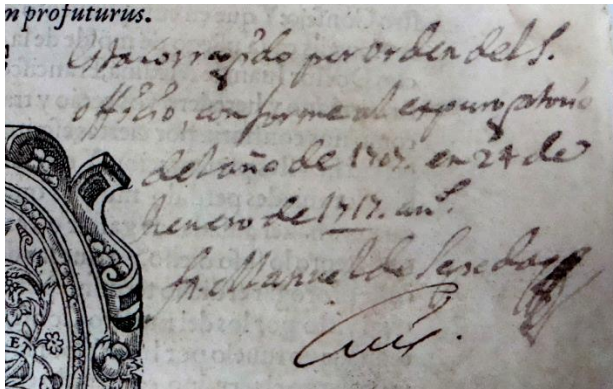 n profuturus.
Esta corregido por orden del S.
officio, conforme al expurgatorio
del año de 1707. en 24 de
henero de 1717. as.
fr. Manuel de